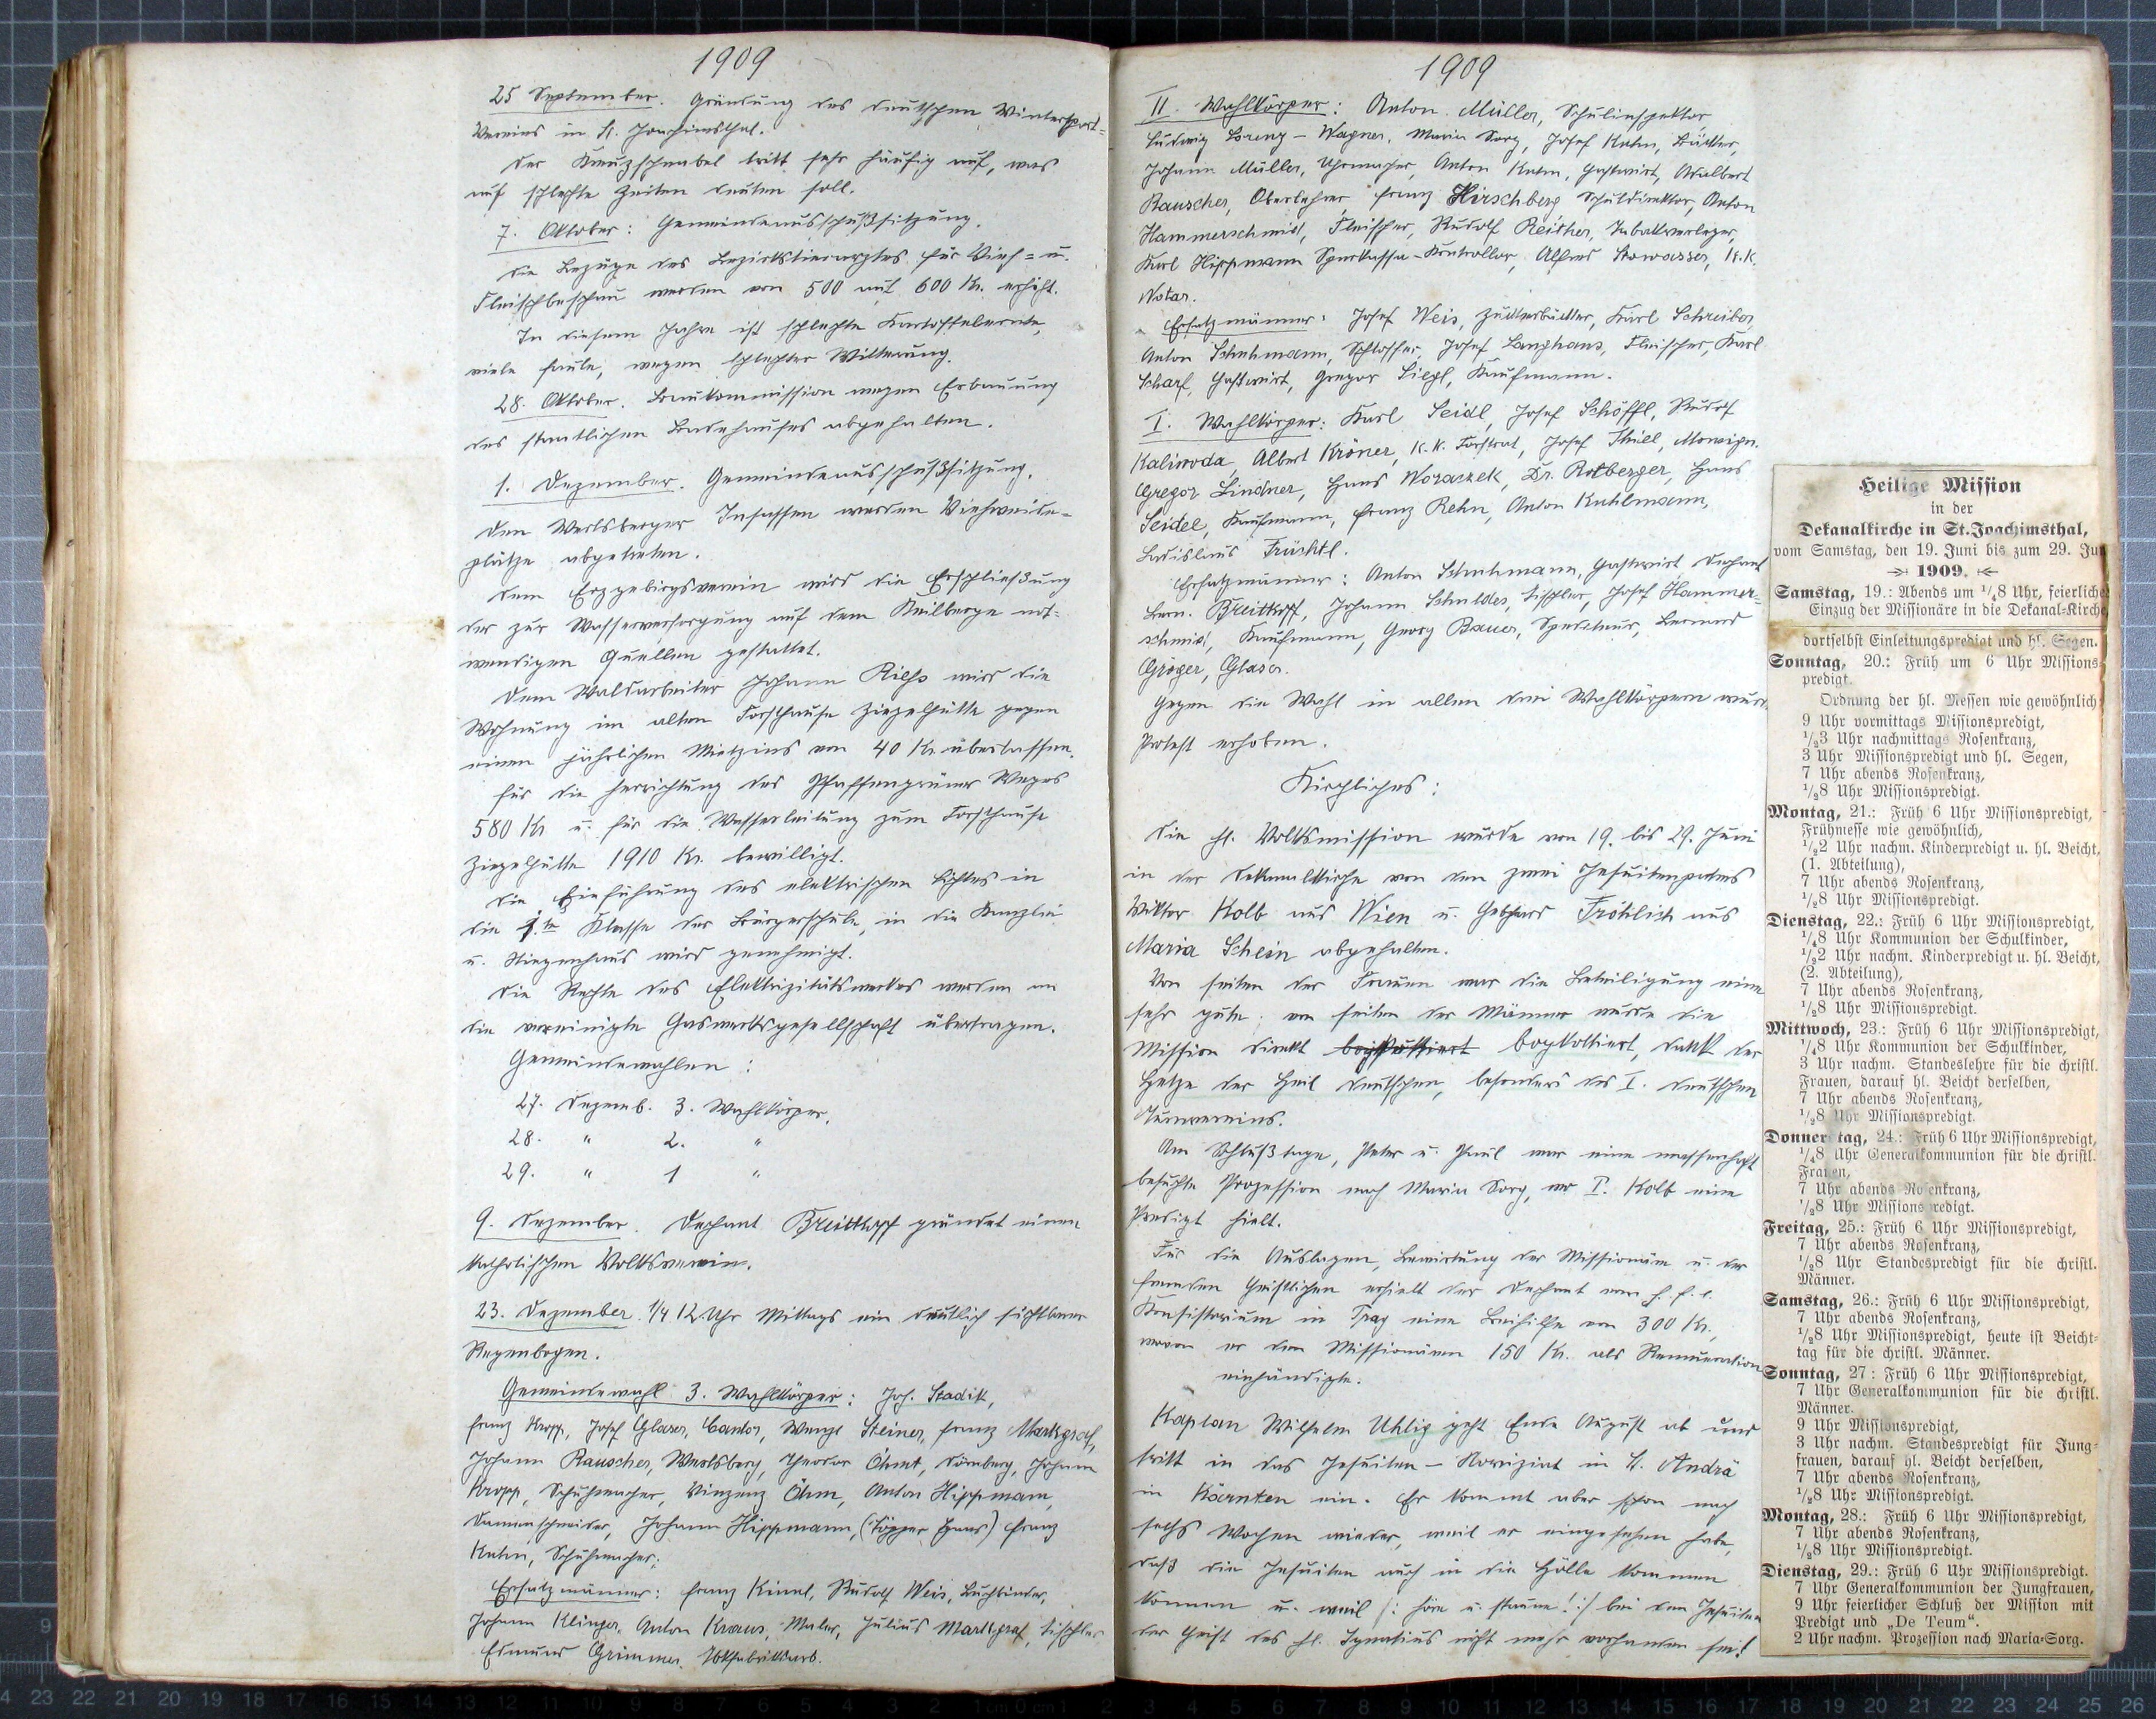 1909
25 September. Gründung des deutschen Wintersport=
Vereins in St. Joachimsthal.
Der Kreuzschnabel tritt sehr häufig auf, was
auf schlechte Zeiten deuten soll.
7. Oktober: Gemeindeausschußsitzung.
Die Bezüge des Bezirkstierarztes für Vieh= u.
Fleischbeschau werden von 500 auf 600 Kr. erhöht.
In diesem Jahre ist schlechte Kartoffelernte,
viele faule, wegen schlechter Witterung.
28. Oktober. Baukommission wegen Erbauung
des staatlichen Badehauses abgehalten.
1. Dezember. Gemeindeausschußsitzung.
Den Werlsberger Insassen werden Viehweide=
plätze abgetreten.
Dem Erzgebirgsverein wird die Erschließung
der zur Wasserversorgung auf dem Keilberge not=
wendigen Quellen gestattet.
Dem Waldarbeiter Johann wird die
Wohnung im alten Forsthause Ziegelhütte gegen
einen jährlichen Mietzins von 40 Kr. überlassen.
Für die Herrichtung des Pfaffengrüner Weges
580 Kr. u. für die Wasserleitung zum Forsthause
Ziegelhütte 1910 Kr. bewilligt.
Die Einführung des elektrischen Lichtes in
die 1.te Klasse der Bürgerschule, in die Kanzlei
u. Stiegenhaus wird genehmigt.
Die Rechte des Elektrizitätswerkes werden an
die vereinigte Gaswerksgesellschaft übertragen.
Gemeindewahlen:
27. Dezemb. 3. Wahlkörper.
28. " 2. "
29. " 1 "
9. Dezember. Dechant Breitkopf gründet einen
katholischen Volksverein.
23. Dezember 1/4 12 Uhr Mittags ein deutlich sichtbarer
Regenbogen.
Gemeindewahl 3. Wahlkörper: Joh. Stadik,
Franz Kropp, Josef Glaser, Cantor, Wenzl Steiner, Franz Markgraf,
Johann Rauscher, Werlsberg, Theodor Öhmt, Dürnberg, Johann
Kropp, Schuhmacher, Vinzenz Öhm, Anton Hippmann,
Damenschneider, Johann Hippmann, (Töpper Haus) Franz
Kuhn, Schuhmacher;
Ersatzmänner: Franz Kinnl, Rudolf Weis, Buchbinder,
Johann Klinger, Anton Kraus, Maler, Julius Markgraf, Tischler
Edmund Grimmer,
1909
II. Wahlkörper: Anton Müller, Schulinspektor
Ludwig Lorenz - Wagner, Maria Sorg, Josef Kuhn, Bäcker,
Johann Müller, Uhrmacher, Anton Kuhn, Gastwirt, Adalbert
Rauscher, Oberlehrer, Franz Hirschberg Schuldirektor, Anton
Hammerschmid, Fleischer, Rudolf Reither, Tabakverleger,
Karl Hippmann Sparkassa-Kontrollor, Alfred Stowasser, K.K.
Notar.
Ersatzmänner: Josef Weis, Zuckerbäcker, Karl Schreiber,
Anton Schuhmann, Schlosser, Josef Langhans, Fleischer, Karl
Scharf, Gastwirt, Gregor Siegl, Kaufmann.
I. Wahlkörper: Karl Seidl, Josef Schöffl, Rudolf
Kaliwoda, Albert Kröner, K.K. Forstrat, Josef Thiell, Monsign.
Gregor Lindner, Hans Worarzek, Dr. Rotberger, Hans
Seidel, Kaufmann, Franz Rehn, Anton Kuhlmann,
Ladislaus Früchtl.
Ersatzmänner: Anton Schuhmann, Gastwirt Dechant
Bern. Breitkopf, Johann Schulder, Tischler, Josef Hammer=
schmid, Kaufmann, Georg Bauer, Spediteur, Bernard
Gröger, Glaser.
Gegen die Wahl in allen drei Wahlkörpern wurd.
Protest erhoben.
Kirchliches:
Die hl. Volksmission wurde von 19. bis 29. Juni
in der Dekanalkirche von den zwei Jesuitenpatres
Viktor Kolb aus Wien u. Gebhard Fröhlich aus
Maria Schein abgehalten.
Von seiten der Frauen war die Beteiligung eine
sehr gute; von seiten der Männer wurde die
Mission direkt boykottiert, dank der
Hetze der Heil deutschen, besonders des I. deutschen
Turnvereins.
Am Schlußtage, Peter u. Paul war eine massenhaft
besuchte Prozession nach Maria Sorg, wo P. Kolb eine
Predigt hielt.
Für die Auslagen, Bewirtung der Missionäre u. der
fremden Geistlichen erhielt der Dechant vom h. f. e.
Konsistorium in Prag eine Beihilfe von 300 Kr.,
wovon er den Missionären 150 Kr. als Remuneration
einhändigte.
Kaplan Wilhelm Uhlig geht Ende August ab und
tritt in das Jesuiten-Noviziat in St. Andrä
in Kärnten ein. Er kommt aber schon nach
sechs Wochen wieder, weil er eingesehen habe,
daß die Jesuiten auch in die Hölle kommen
können u. weil /: höre u. staune! :/ bei den Jesuiten
der Geist des hl. Ignatius nicht mehr vorhanden sei!
Heilige Mission
in der
Dekanalkirche in St. Joachimsthal,
vom Samstag, den 19. Juni bis zum 29. Jun
1909.
Samstag, 19.: Abends um 1/48 Uhr, feierliche
Einzug der Missionäre in die Dekanal-Kirche
dortselbst Einleitungspredigt und hl. Segen.
Sonntag, 20.: Früh um 6 Uhr Missions-
predigt.
Ordnung der hl. Messen wie gewöhnlich
9 Uhr vormittags Missionspredigt,
1/23 Uhr nachmittags Rosenkranz,
3 Uhr Missionspredigt und hl. Segen,
7 Uhr abends Rosenkranz,
1/28 Uhr Missionspredigt.
Montag, 21.: Früh 6 Uhr Missionspredigt,
Frühmesse wie gewöhnlich,
1/22 Uhr nachm. Kinderpredigt u. hl. Beicht,
(1. Abteilung),
7 Uhr abends Rosenkranz,
1/28 Uhr Missionspredigt.
Dienstag, 22.: Früh 6 Uhr Missionspredigt,
1/48 Uhr Kommunion der Schulkinder,
1/22 Uhr nachm. Kinderpredigt u. hl. Beicht,
(2. Abteilung),
7 Uhr abends Rosenkranz,
1/28 Uhr Missionspredigt.
Mittwoch, 23.: Früh 6 Uhr Missionspredigt,
1/48 Uhr Kommunion der Schulkinder,
3 Uhr nachm. Standeslehre für die christl.
Frauen, darauf hl. Beicht derselben,
7 Uhr abends Rosenkranz,
1/28 Uhr Missionspredigt.
Donnerstag, 24.: Früh 6 Uhr Missionspredigt,
1/48 Uhr Generalkommunion für die christl.
Frauen,
7 Uhr abends Rosenkranz,
1/28 Uhr Missionspredigt.
Freitag, 25.: Früh 6 Uhr Missionspredigt,
7 Uhr abends Rosenkranz,
1/28 Uhr Standespredigt für die christl.
Männer.
Samstag, 26.: Früh 6 Uhr Missionspredigt,
7 Uhr abends Rosenkranz,
1/28 Uhr Missionspredigt, heute ist Beicht-
tag für die christl. Männer.
Sonntag, 27: Früh 6 Uhr Missionspredigt,
7 Uhr Generalkommunion für die christl.
Männer.
9 Uhr Missionspredigt,
3 Uhr nachm. Standespredigt für Jung-
frauen, darauf hl. Beicht derselben,
7 Uhr abends Rosenkranz,
1/28 Uhr Missionspredigt.
Montag, 28.: Früh 6 Uhr Missionspredigt,
7 Uhr abends Rosenkranz,
1/28 Uhr Missionspredigt.
Dienstag, 29.: Früh 6 Uhr Missionspredigt.
7 Uhr Generalkommunion der Jungfrauen,
9 Uhr feierlicher Schluß der Mission mit
Predigt und „De Teum“.
2 Uhr nachm. Prozession nach Maria-Sorg.